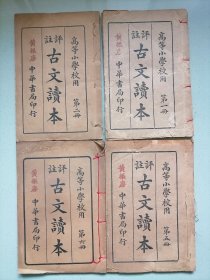 高等小學校用 第一冊
評註
古文讀本
中華書局印行
高等小學校用
評註
古文讀本
中華書局印行
高等小學校用 第五冊
評註
古文讀本
中華書局印行
高等小學校用 第六冊
評註
古文讀本
中華書局印行